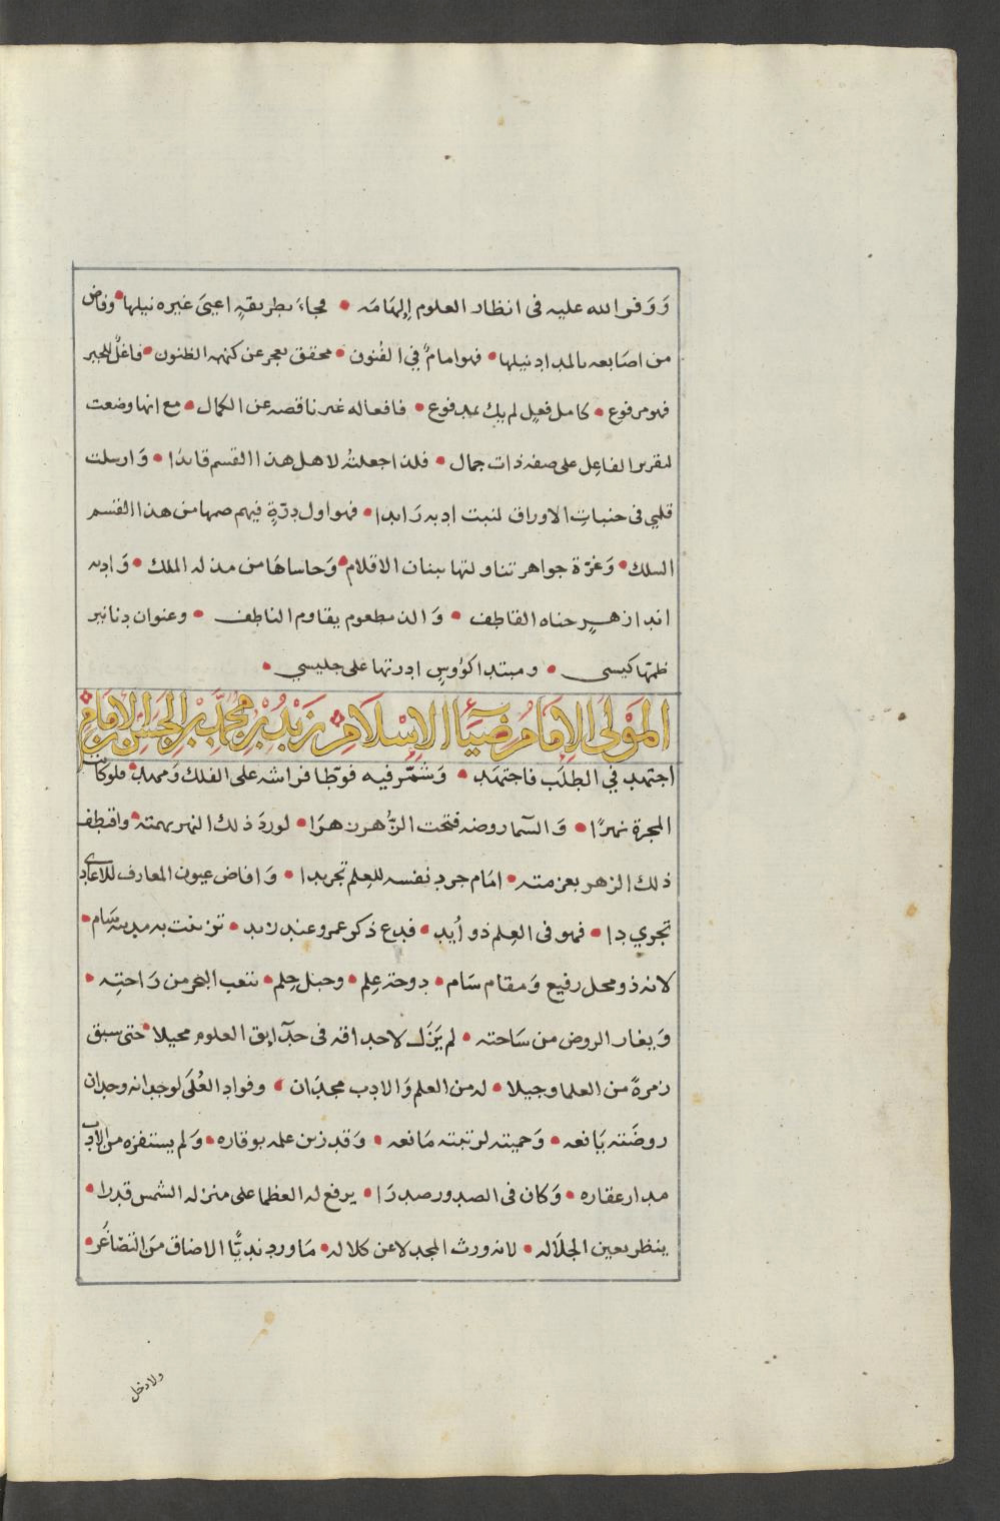 وَوَفر الله عليه فى انظار العلوم إِلهَامَه • فجاءَ بطريقةٍ اعيىَ غيره نيلها • وفاض
من اصَابعه بالمداد نيلها • فهو امامٌ في الفُنون • محقق يعجز عن كنهه الظنون • فاعلٌ للخير
فهو مرفوع • كامل فعلٍ لم يك بمدفوع • فافعاله غير ناقصه عن الكمال • مع انها وضعت
لتقرير الفاعِل على صفه ذات جمال • فلذا جعلتُه لاهل هذا القسم قايدًا • وَارسلت
قلمي فى جنبات الاوراق لنبت ادبه رَايدا • فهو اول درّةٍ فيهم ضمها من هذا القسم
السلك • وَغرّة جواهر تناولتها ببنان الاقلام • وَحاساهَا من مذله الملك • وَادبه
انداز هيرٍ جناه القاطف • وَالذ مطعوم يقاوم الناطف • وعنوان دنانير
ضمّها كيسى • ومبتدا كؤوسٍ ادرتها على جليسي •
المَوْلَى الإِمَامُ ضيَاءُ الإِسْلَامِ زَيْدُ بْنُ مُحَمَّدِ بْنِ الْحَسَنِ بْنِ الْإِمَامِ
اجتهد في الطلَب فاجتهد • وَشمّر فيه فوطّا فراشه على الفلك وَمهد • فلو كان
المجرة نهرًا • وَالسّما روضه فتحت الزُّهر زهرًا • لوردَ ذلك النهر بهمته • واقتطف
ذلك الزهر بعزمته • امَام جرد نفسه للعلم تجريدا • وَافاض عيون المعارف للاعادى
تجوي دا • فهو فى العِلم ذو أيد • فدع ذكر عمرو عند زيد • تزينت به مدينه سَام •
لانه ذو محل رفيع وَمقام سَام • دوحة عِلم • وجبل حِلم • يتعب البحر من رَاحتِه •
وَيغار الروض من سَاحته • لم يَزَل لاحداقه فى حدَآيق العلوم مجيلا • حتى سبق
زمرةً من العلما وجيلا • له من العلم وَالادب مجدَان • وفواد العُلَى لوجدانه وجدان
روضَته يَانعه • وَحميته لرتبته مَانعه • وَقد زين علمه بوقاره • وَلم يستفزه من الادب
مدار عقاره • وَكان فى الصدور صدرَا • يرفع له العظما على منزله الشمس قدرا •
ينظر بعين الجلَاله • لانه ورث المجد لا عن كلاله • مَاورد نديًّا الا ضاق منَ التضاغُر •
ولا دخل